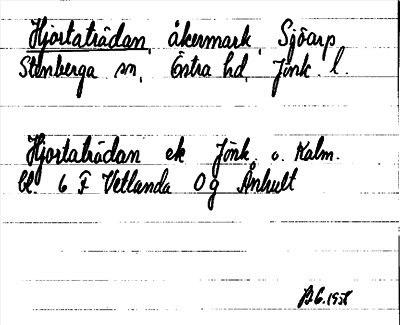 Hjortaträdan, åkermark, Sjöarp
Stenberga sn, Östra hd, Jönk. l.
Hjortaträdan ek Jönk. o. Kalm.
bl. 6 F Vetlanda Og Århult
1958